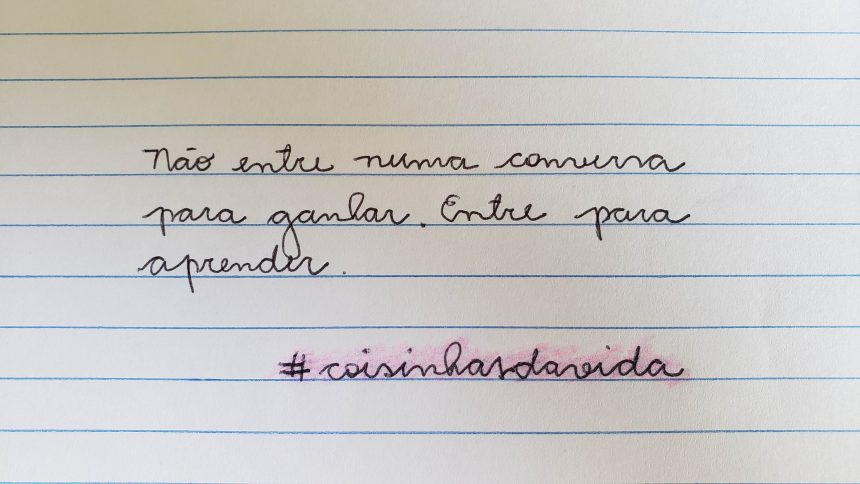 Não entre numa conversa
para ganhar. Entre para
aprender.
#coisinhasdavida